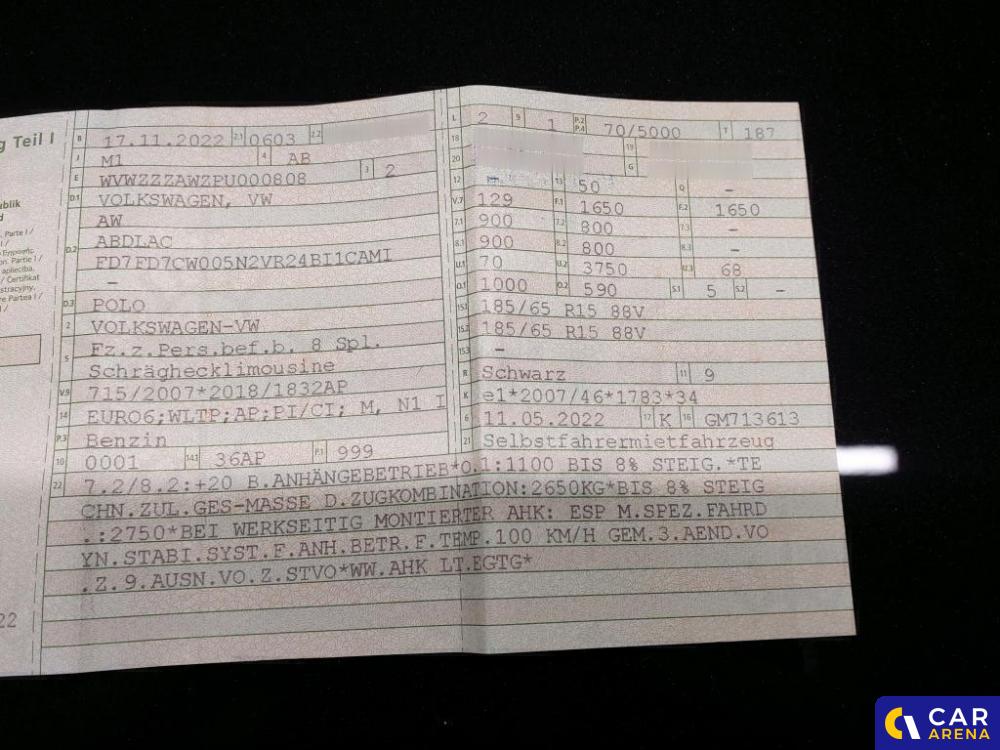 g Teil I
B 17.11.2022 2.1 0603 2.2
J M1 4 AB
E WVWZZZAWZPU000808 3 2
D.1 VOLKSWAGEN, VW
AW
D.2 ABDLAC
FD7FD7CW005N2VR24BI1CAMI
–
D.3 POLO
2 VOLKSWAGEN-VW
5 Fz.z.Pers.bef.b. 8 Spl.
Schräghecklimousine
V.9 715/2007*2018/1832AP
14 EURO6;WLTP;AP;PI/CI; M, N1 I
P.3 Benzin
10 0001 14.1 36AP P.1 999
L 2 9 1 P.2 P.4 70/5000 T 187
18 19
20 G
12 – 13 50 Q –
V.7 129 F.1 1650 F.2 1650
7.1 900 7.2 800 7.3 –
8.1 900 8.2 800 8.3 –
U.1 70 U.2 3750 U.3 68
O.1 1000 O.2 590 S.1 5 S.2 –
15.1 185/65 R15 88V
15.2 185/65 R15 88V
15.3 –
R Schwarz 11 9
K e1*2007/46*1783*34
6 11.05.2022 17 K 16 GM713613
21 Selbstfahrermietfahrzeug
22 7.2/8.2:+20 B.ANHÄNGEBETRIEB*O.1:1100 BIS 8% STEIG.*TE
CHN.ZUL.GES-MASSE D.ZUGKOMBINATION:2650KG*BIS 8% STEIG
.:2750*BEI WERKSEITIG MONTIERTER AHK: ESP M.SPEZ.FAHRD
YN.STABI.SYST.F.ANH.BETR.F.TEMP.100 KM/H GEM.3.AEND.VO
.Z.9.AUSN.VO.Z.STVO*WW.AHK LT.EGTG*
22
CAR
ARENA